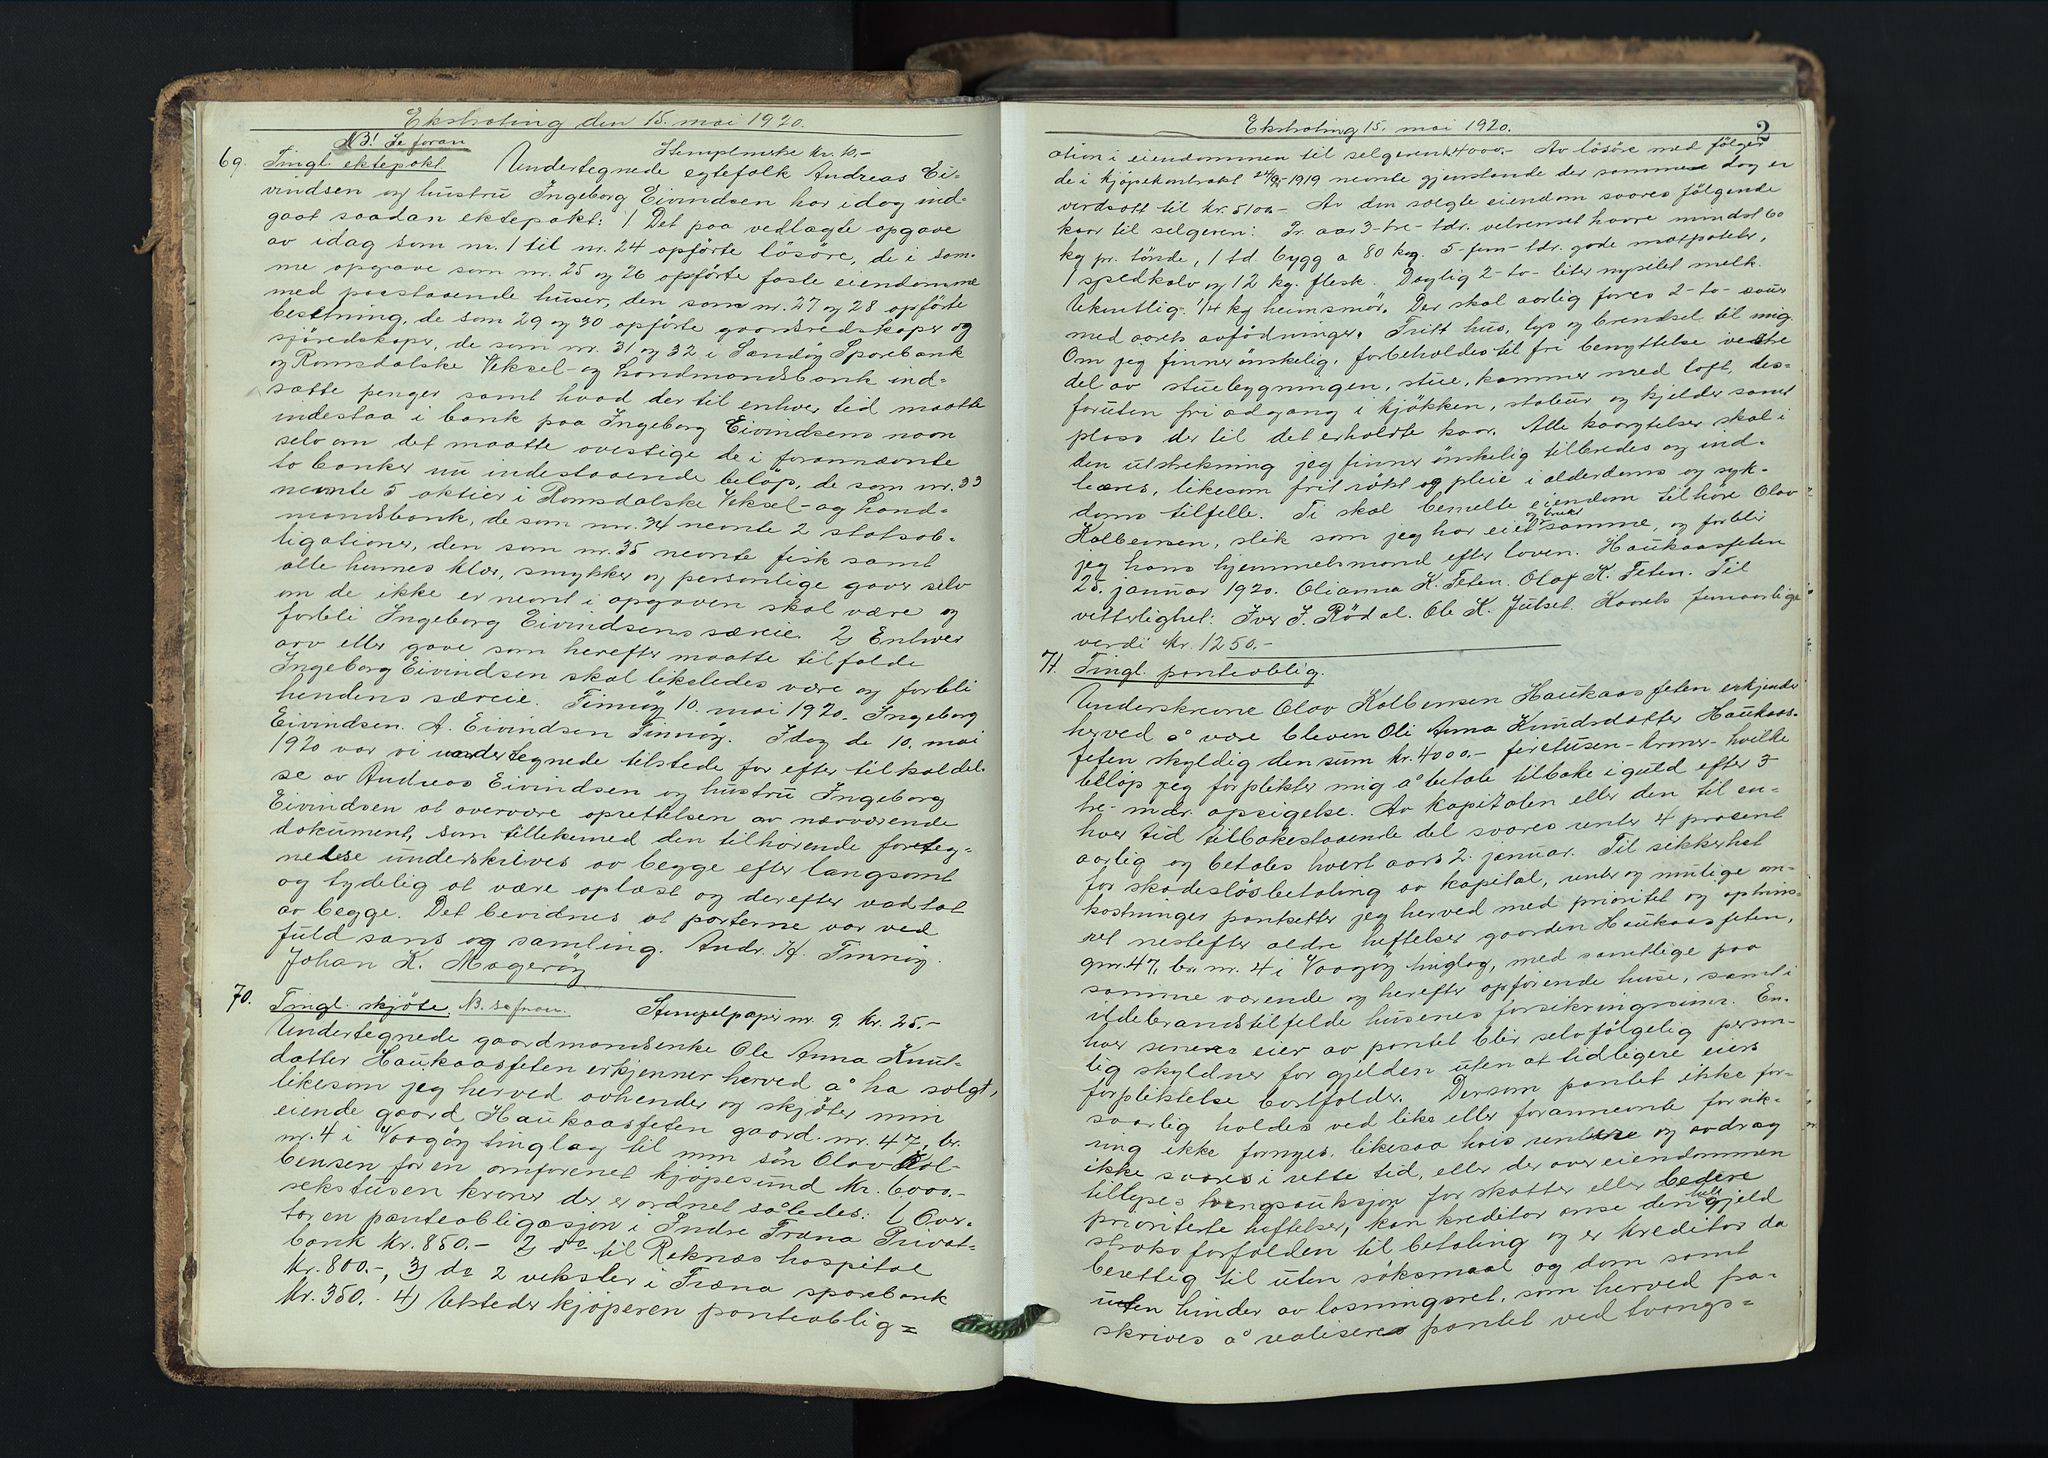 Ekstrating den 15. mai 1920.
NB! Se foran
69. Tingl. ektepakt. Stempelmerke kr. 10.-
Undertegnede egtefolk Andreas Ei-
vindsen og hustru Ingeborg Eivindsen har idag ind-
gaat saadan ektepakt: 1 Det paa vedlagte opgave
av idag som nr. 1 til nr. 24 opførte løsøre, de i sam-
me opgave som nr. 25 og 26 opførte faste eiendomme
med paastaaende huser, den som nr. 27 og 28 opførte
besetning, de som 29 og 30 opførte gaardsredskaper og
sjøredskaper, de som nr. 31 og 32 i Sandøy Sparebank
og Romsdalske Veksel- og Landmandsbank ind-
satte penger samt hvad der til enhver tid maatte
indestaa i bank paa Ingeborg Eivindsens navn
selv om det maatte overstige de i forannævnte
to banker nu indestaaende beløp, de som nr. 33
nevnte 5 aktier i Romsdalske Veksel- og Land-
mandsbank, de som nr. 34 nevnte 2 statsob-
ligationer, den som nr. 35 nevnte fisk samt
alle hennes klær, smykker og personlige gaver selv
om de ikke er nevnt i opgaven skal være og
forbli Ingeborg Eivindsens særeie. 2) Enhver
arv eller gave som herefter maatte tilfalde
Ingeborg Eivindsen skal likeledes være og forbli
hendens særeie. Finnøy 10. mai 1920. Ingeborg
Eivindsen. A. Eivindsen Finnøy. Idag de 10. mai
1920 var vi undertegnede tilstede for efter tilkaldel-
se av Andreas Eivindsen og hustru Ingeborg
Eivindsen at overvære oprettelsen av nærværende
dokument, som tillikemed den tilhørende forteg-
nelse underskrives av begge efter langsomt
og tydelig at være oplæst og derefter vedtat
av begge. Det bevidnes at parterne var ved
fuld sans og samling. Andr. K. Finnøy.
Johan K. Magerøy
70. Tingl. skjøte. NB. se foran. Stempelpapir nr. 9. Kr. 25.-
Undertegnede gaardmandsenke Ole Anna Knut-
datter Haukaasfeten erkjenner herved å ha solgt,
likesom jeg herved avhender og skjøter min
eiende gaard Haukaasfeten gaard. nr. 47, br.
nr. 4 i Vaagøy tinglag til min søn Olav Kol-
bensen for en omforenet kjøpesund kr. 6000.-
sekstusen kroner der er ordnet således: 1 Over-
tar en panteobligasjon i Indre Fræna Privat-
bank kr. 850.- 2) do til Reknæs hospital
kr. 800.-, 3) do 2 veksler i Fræna sparebank
kr. 350.- 4) Utsteder kjøperen panteoblig=
Ekstrating 15. mai 1920. 2
ation i eiendommen til selgeren 4000.- Av løsøre med følger
de i kjøpekontrakt 24/9 1919 nevnte gjenstande der sammen dag er
verdsatt til kr. 5100.- Av den solgte eiendom svares følgende
kaar til selgeren: Pr. aar 3-tre- tdr. velrenset havre mindst 60
kg pr. tønde, 1 td. bygg a 80 kg. 5-fem- tdr. gode matpoteter,
1 spedkalv og 12 kg. flesk. Daglig 2-to- liter nysilet melk.
Ukentlig 1/4 kg heimsmør. Der skal aarlig fores 2-to- sauer
med aarets avfødninger. Fritt hus, lys og brendsel til mig
Om jeg finner ønskelig, forbeholdes til fri benyttelse vestre
del av stuebygningen, stue, kammer med loft, des-
foruten fri adgang i kjøkken, stabur og kjelder samt
plass der til det erholdte kaar. Alle kaarytelser skal i
den utstrekning jeg finner ønskelig tilbredes og ind-
bæres, likesom frit røkt og pleie i alderdoms og syk-
doms tilfelle. Ti skal bemelte eiendom tilhøre Olav
Kolbensen, slik som jeg har eiet og brukt samme, og forblir
jeg hans hjemmelsmand efter loven. Haukaasfeten
25. januar 1920. Olianna K. Feten. Olaf K. Feten. Til
vitterlighet: Iver J. Rødal. Ole K. Jutsel. Kaarets femaarlige
verdi kr. 1250.-
71. Tingl. panteoblig.
Underskrevne Olav Kolbensen Haukaasfeten erkjender
herved å være bleven Oli Anna Knudsdatter Haukaas-
feten skyldig den sum kr. 4000.- firetusen- kroner- hvilke
beløp jeg forplikter mig å betale tilbake i guld efter 3
tre- mdr. opsigelse. Av kapitalen eller den til en-
hver tid tilbakestaaende del svares renter 4 prosent
aarlig og betales hvert aars 2. januar. Til sikkerhet
for skadesløsbetaling av kapital, renter og mulige om-
kostninger pantsetter jeg herved med prioritet og optrins-
ret nestefter ældre heftelser gaarden Haukaasfeten,
gnr. 47, br. nr. 4 i Vaagøy tinglag, med samtlige paa
samme værende og herefter opførende huse, samt i
ildebrandstilfelde husenes forsikringssum. En-
hver senere eier av pantet blir selvfølgelig person-
lig skyldner for gjelden uten at tidligere eiers
forpliktelse bortfalder. Dersom pantet ikke for-
svarlig holdes ved like eller forannevnte forsik-
ring ikke fornyes, likesaa hvis rentene og avdrag
ikke svares i rette tid, eller der over eiendommen
tillyses tvangsauksjon for skatter eller bedere
prioriterte heftelser, kan kreditor anse den hele gjeld
straks forfalden til betaling og er kreditor da
berettig til uten søksmaal og dom samt
uten hinder av løsningsret, som herved fra-
skrives å realisere pantet ved tvangs=